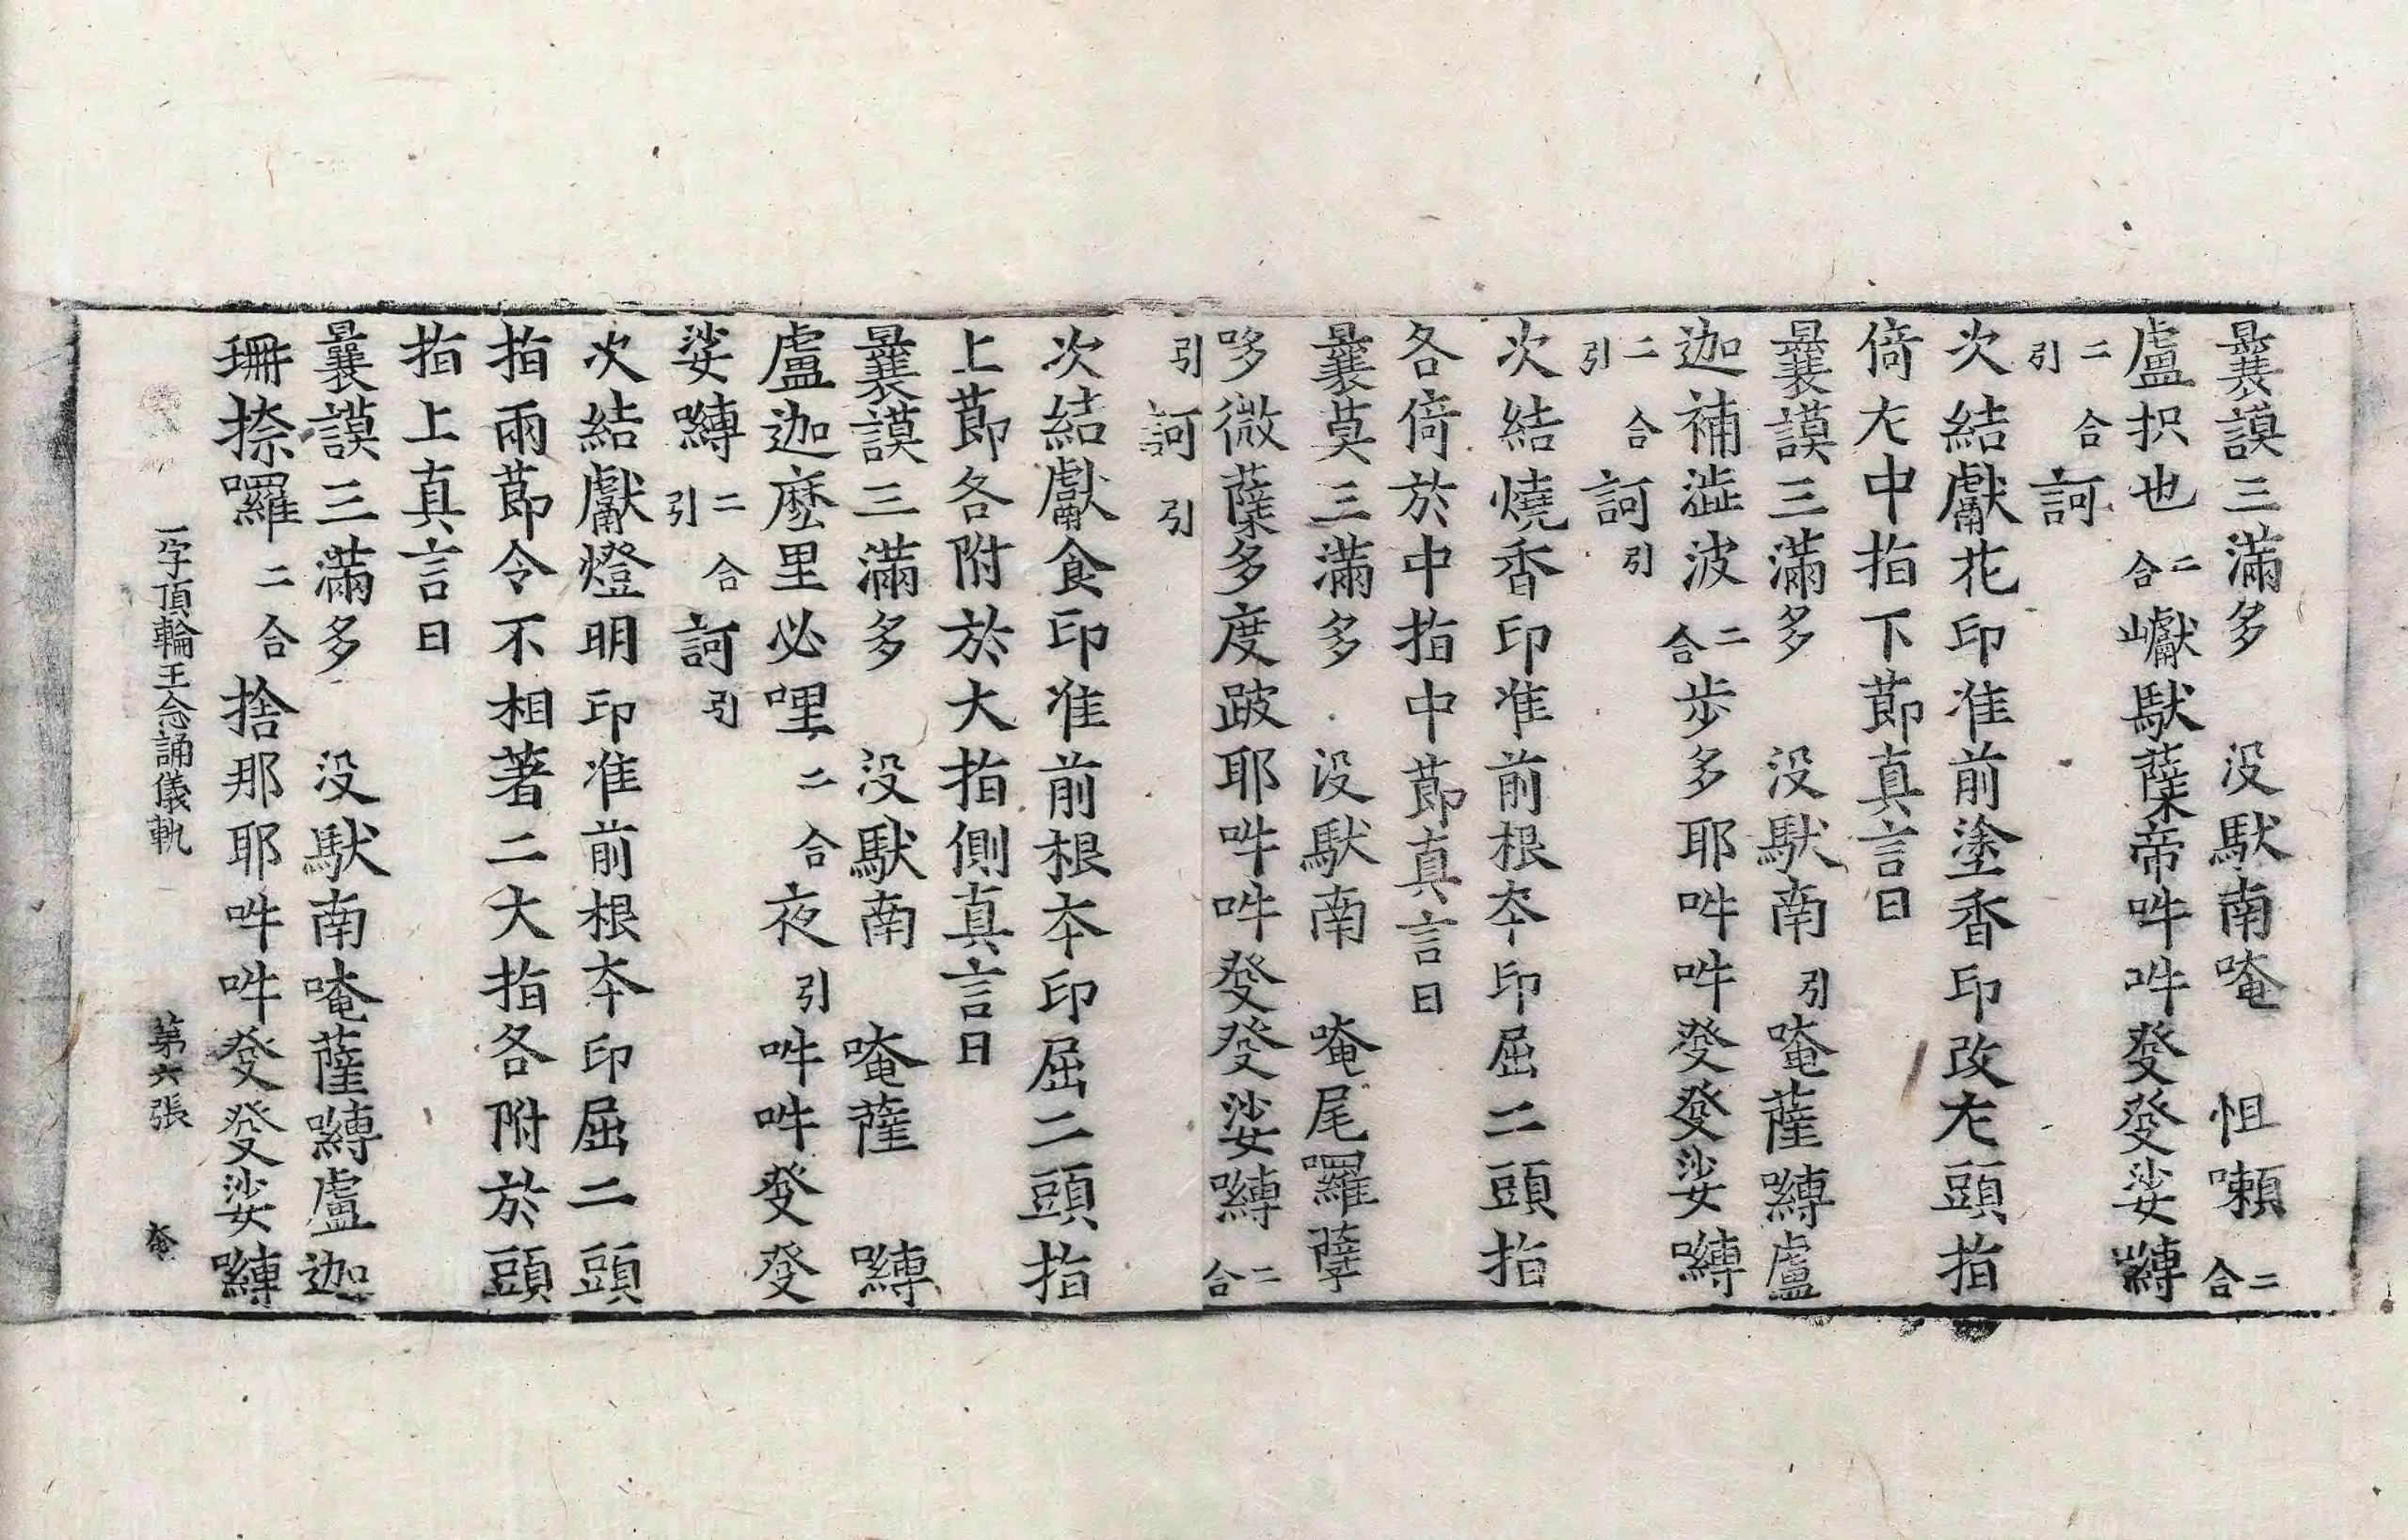 曩謨三滿多没馱南唵怛嚩二合
盧枳也二合巘馱薩帝吽吽發發娑嚩
二合引訶
次結獻花印准前塗香印改右頭指
倚右中指下莭真言曰
曩謨三滿多没馱南引唵薩嚩盧
迦補澁波二合步多耶吽吽發發娑嚩
二合引訶引
次結燒香印准前根夲印屈二頭指
各倚於中指中莭真言曰
曩莫三滿多没馱南唵尾囉孽
哆微蘖多度跛耶吽吽發發娑嚩二合
引訶引
次結獻食印准前根夲印屈二頭指
上莭各附於大指側真言曰
曩謨三滿多没馱南唵薩嚩
盧迦麽里必哩二合夜引吽吽發發
娑嚩二合引訶引
次結獻燈明印准前根夲印屈二頭
指兩莭令不相著二大指各附於頭
指上真言曰
曩謨三滿多没馱南唵薩嚩盧迦
珊捺囉二合捨那耶吽吽發發娑嚩
一字頂輪王念誦儀軌 第六張